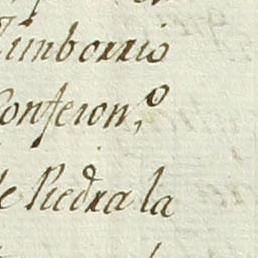 Zimborrio
Conferon,º
de Piedra la